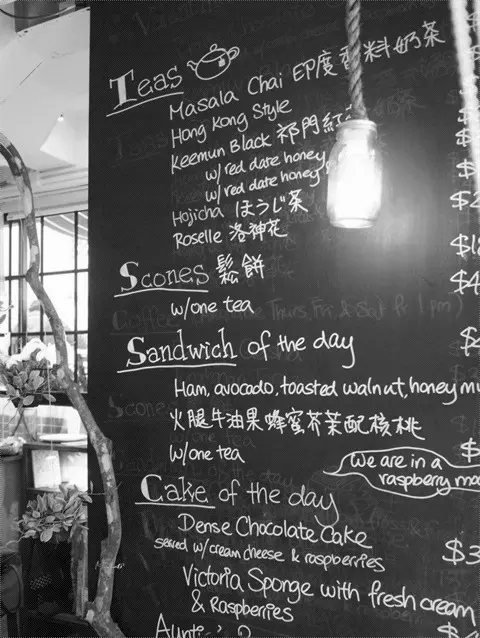 Teas
Masala Chai 印度香料奶茶
Hong Kong Style
Keemun Black 祁門紅
w/red date honey
w/red date honey
Hojicha ほうじ茶
Roselle 洛神花
Scones 鬆餅
w/one tea
Sandwich of the day
Ham, avocado, toasted walnut, honey mu
火腿牛油果蜂蜜芥茉配核桃
w/one tea
We are in a
raspberry moo
Cake of the day
Dense Chocolate Cake
served w/cream cheese & raspberries
$3
Victoria Sponge with fresh cream
& Raspberries
Auntie's